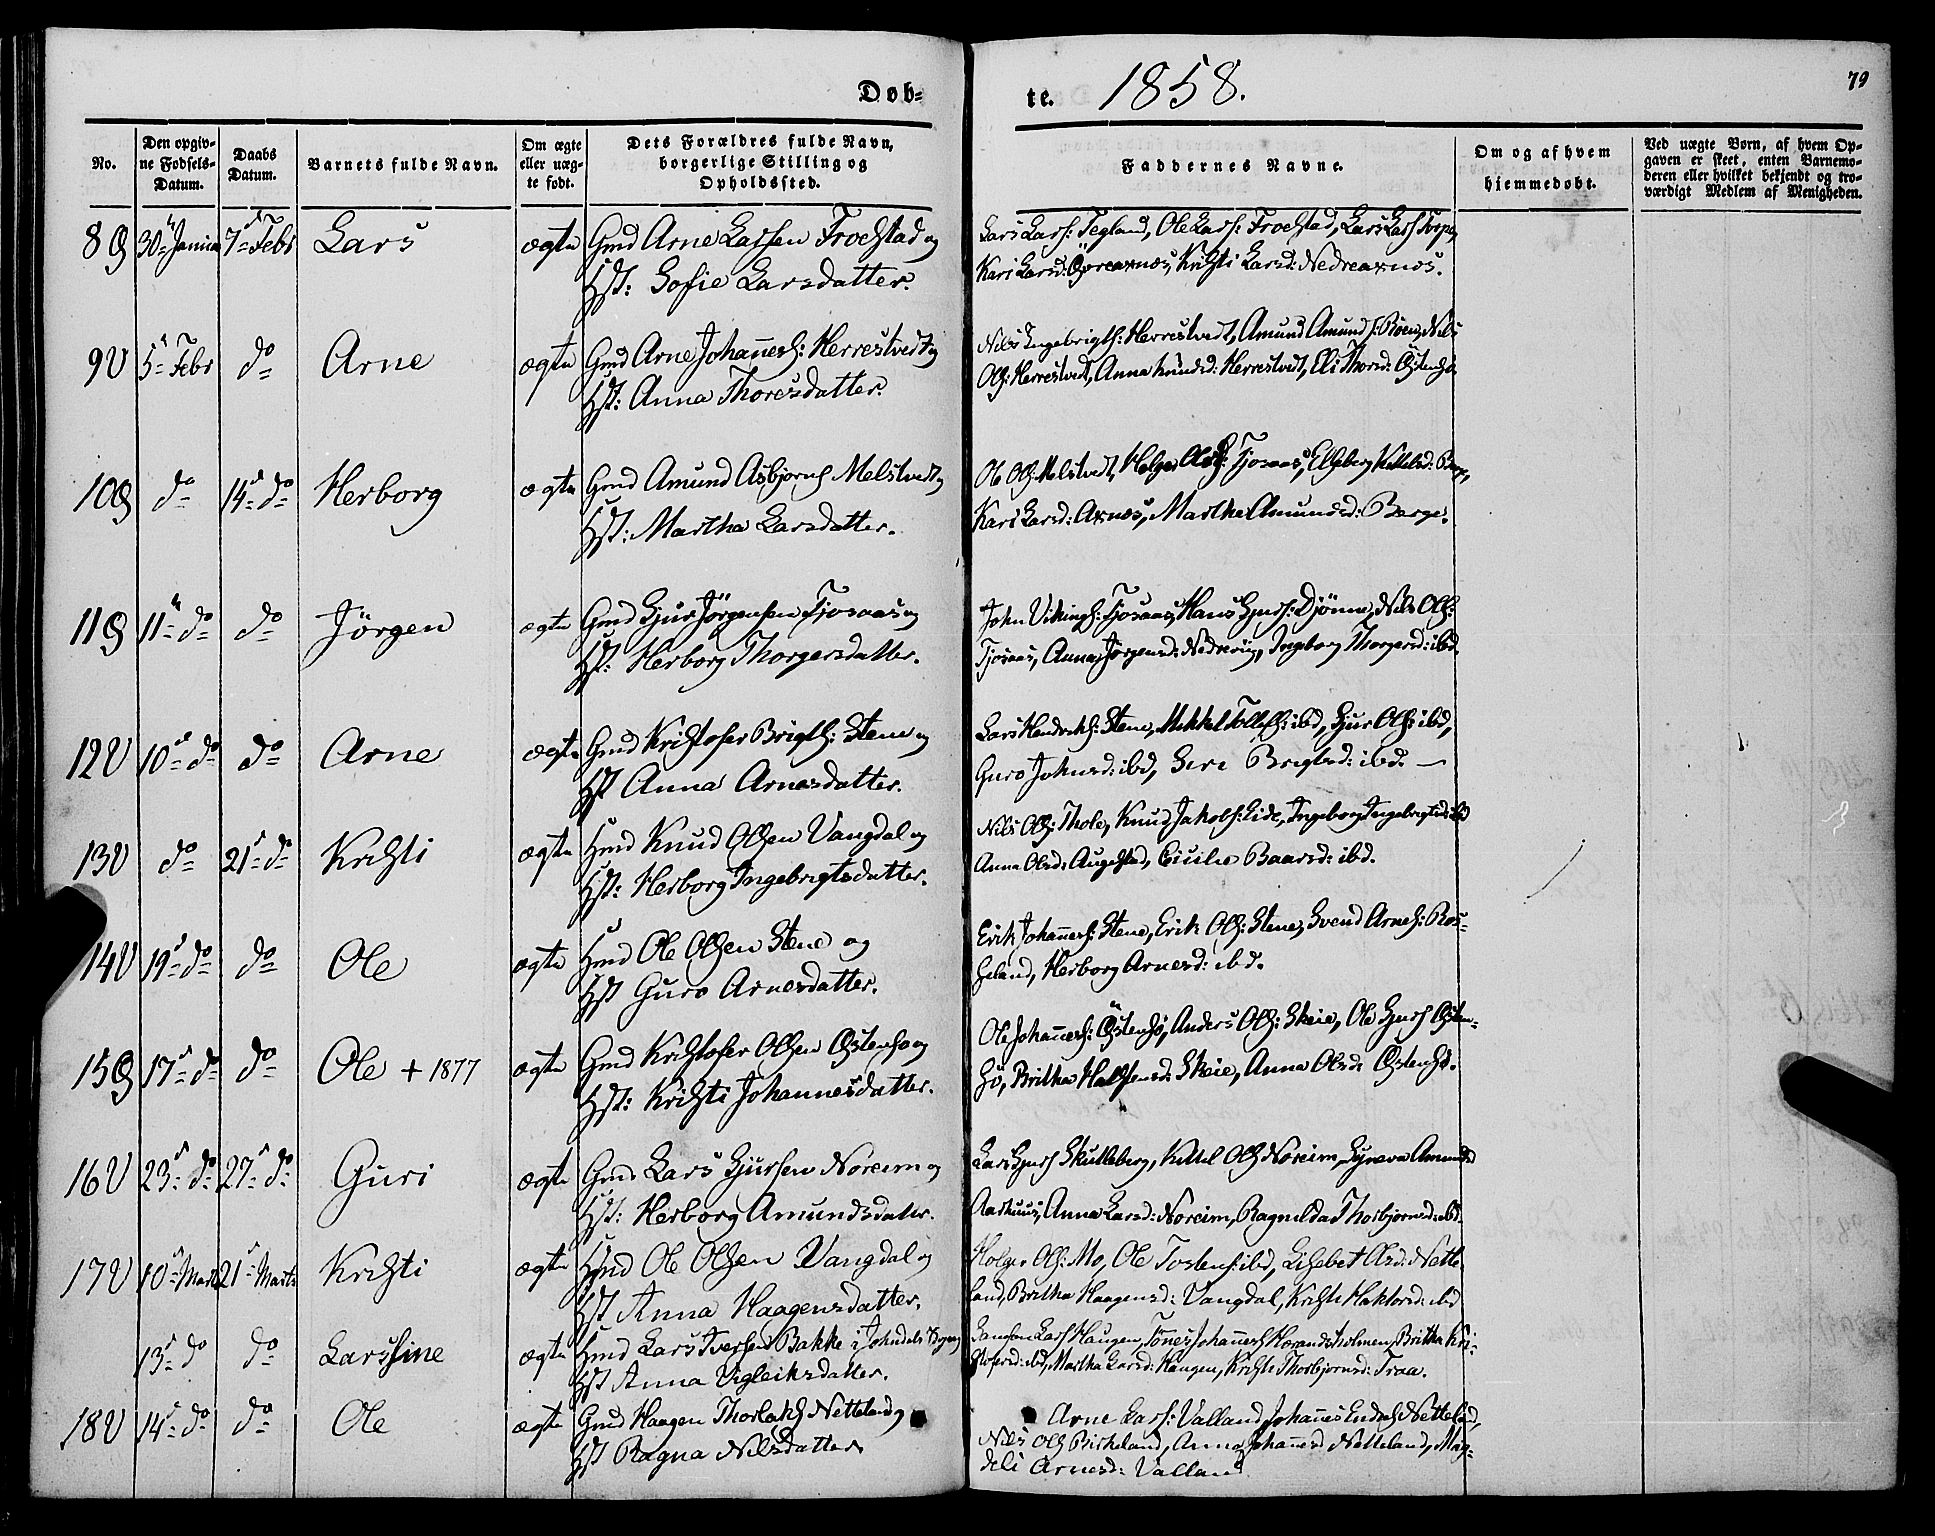 Døb-
te. 1858.
79
No.
Den opgiv-
ne Fødsels-
Datum.
Daabs
Datum.
Barnets fulde Navn.
Om ægte
eller uæg-
te født.
Dets Forældres fulde Navn,
borgerlige Stilling og
Opholdssted.
Faddernes Navne.
Om og af hvem
hjemmedøbt.
Ved uægte Børn, af hvem Op-
gaven er skeet, enten Barnemo-
deren eller hvilket bekjendt og tro-
værdigt Medlem af Menigheden.
8 Ø 30te Januar 7de Febr Lars ægte Gmd Arne Larsen Frøestad og
Hst: Sofie Larsdatter.
Lars Lars: Tegland, Ole Lars: Frøestad, Lars Lars
Kari Larsd: Øvreaxnæs, Kristi Larsd: Nedreaxnæs.
9 V 5te Febr do Arne ægte Gmd Arne Johannes: Herrestvedt og
Hst: Anna Thoresdatter.
Nils Ingebrigts: Herrestvedt, Amund Amunds: Røen, Nils
Ols: Herrestvedt, Anna Knudsd: Herrestvedt, Eli Thorsd: Østensø
10 Ø do 14de do Herborg ægte Gmd Amund Asbjørns Melstvedt og
Hst: Martha Larsdatter.
Ole Ols: Melstvedt, Holger Ols: Tjosaas, Elseberg Kittelsd: Berge,
Kari Larsd: Axnæs, Martha Amundsd: Berge.
11 Ø 11te do do Jörgen ægte Gmd Sjur Jørgensen Tjosaas og
Hst: Herborg Thorgersdatter.
John Vikings: Tjosaas, Hans Sjurs: Djönne, Nils Ols:
Tjosaas, Anna Jørgensd: Ingeborg Thorgersd: ibd.
12 V 10de do do Arne ægte Gmd Kristofer Brigts: Stene og
Hst Anna Arnesdatter.
Lars Hendriks: Stene, Mikkel Tollefs: ibd, Sjur Ols: ibd,
Guro Johnsd: ibd, Siri Brigtsd: ibd. —
13 V do 21de do Kristi ægte Hmd Knud Olsen Vangdal og
Hst: Herborg Ingebrigtsdatter.
Nils Ols: Thole, Knud Jakobs: Lide, Ingeborg Ingebrigtsd: ibd
Anna Olsd: Augestad, Cicilie Baarsd: ibd.
14 V 19de do do Ole ægte Hmd Ole Olsen Stene og
Hst Guro Arnesdatter.
Erik Johannes: Stene, Erik Ols: Stene, Svend Arnes: Ros-
seland, Herborg Arnesd: ibd.
15 Ø 17de do do Ole + 1877 ægte Gmd Kristofer Olsen Østensø og
Hst: Kristi Johannesdatter.
Ole Johannes: Østensø, Anders Ols: Skeie, Ole Sjurs Østen-
sø, Britha Halstensd: Skeie, Anna Olsd: Østensø.
16 V 23de do 27de do Guri ægte Gmd Lars Sjursen Noreim og
Hst: Herborg Amundsdatter.
Lars Sjurs Skutleberg, Kittel Ols Noreim, Synneva Amundsd
Aarhuus, Anna Larsd: Noreim, Ragnilda Thorbjørnsd: ibd.
17 V 10de Marts 21de Marts Kristi ægte Hmd Ole Olsen Vangdal og
Hst Anna Haagensdatter.
Holger Ols: Mo, Ole Tostens: ibd, Lisebet Olsd: Nette-
land, Britha Haagensd: Vangdal, Kristi Haktorsd: ibd
13de do do Larssine ægte Hmd Lars Iversen Bakke i Jondals Sogn og
Hst Anna Vigleiksdatter.
Samson Lars Haugen, Tönes Johannes Hørandsholmen, Britha Kri-
stofersd: ibd, Martha Larsd: Haugen, Kristi Thorbjørnsd: Traa.
18 V 14de do do Ole ægte Gmd Haagen Thorlaks Netteland og
Hst Ragna Nilsdatter
Arne Lars: Valland, Johannes Netteland,
Nils Ols Birkeland, Anna Johannesd Netteland, Mag-
deli Arnesd: Valland